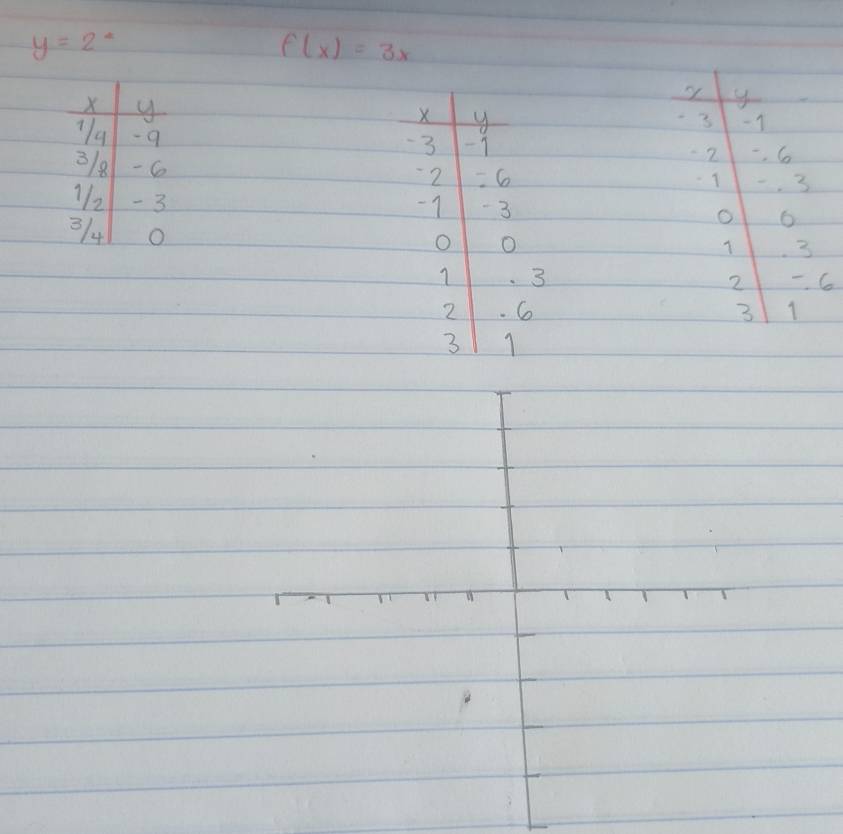 y = 2ˣ f(x) = 3x
x y
1/4 -9
3/8 -6
1/2 -3
3/4 0
x y
-3 -1
-2 -.6
-1 -3
0 0
1 .3
2 .6
3 1
x y
-3 -1
-2 -.6
-1 -.3
0 0
1 .3
2 -.6
3 1